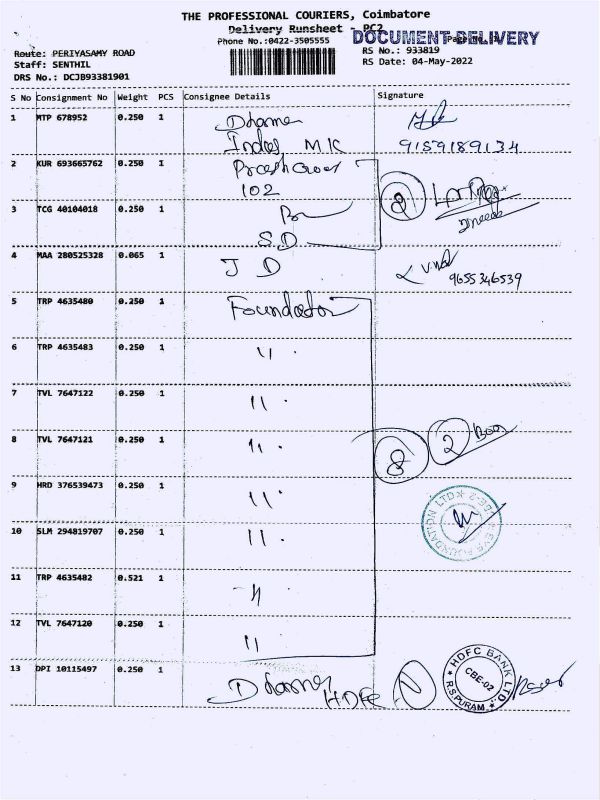 THE PROFESSIONAL COURIERS, Coimbatore
Delivery Runsheet - PC2
Phone No.:0422-3505555
DOCUMENT DELIVERY
Route: PERIYASAMY ROAD
RS No.: 933819
Staff: SENTHIL
RS Date: 04-May-2022
DRS No.: DCJB93381901
S No Consignment No Weight PCS Consignee Details Signature
1 MTP 678952 0.250 1
M.K 9159189134
2 KUR 693665762 0.250 1
102
3 TCG 40104018 0.250 1
S.D
4 MAA 280525328 0.065 1 J D
9655346539
5 TRP 4635480 0.250 1 Foundation
6 TRP 4635483 0.250 1 "
7 TVL 7647122 0.250 1 "
8 TVL 7647121 0.250 1 "
8 2 Box
9 HRD 376539473 0.250 1 "
10 SLM 294819707 0.250 1 "
11 TRP 4635482 0.521 1 "
12 TVL 7647120 0.250 1 "
13 DPI 10115497 0.250 1
HDFC
HDFC BANK LTD.
CBE-02
R.S.PURAM